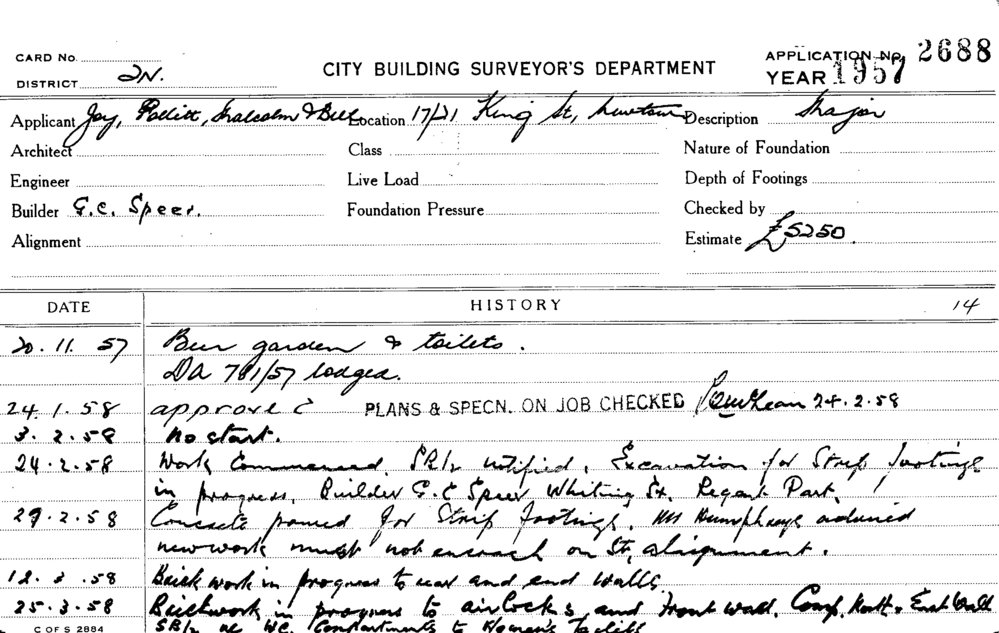 CARD No.
DISTRICT 2N.
CITY BUILDING SURVEYOR'S DEPARTMENT
APPLICATION No. 2688
YEAR 1957
Applicant Joy, Pollitt, Malcolm & Bell Location 17/21 King St, Newtown Description Major
Architect Class Nature of Foundation
Engineer Live Load Depth of Footings
Builder G.C. Speer. Foundation Pressure Checked by
Alignment Estimate £5250.
DATE HISTORY 14
20.11.57 Beer garden & toilets.
DA 781/57 lodged.
24.1.58 approve PLANS & SPECN. ON JOB CHECKED 24.2.58
3.2.58 No start.
24.2.58 Work Commenced. notified. Excavation for Strip footings
in progress. Builder G.C Speer Whiting St. Regent Park.
Concrete poured for Strip footings. Mr Humphreys advised
new work must not encroach on St, alignment.
12.3.58 Brickwork in progress to rear and end walls.
25.3.58 Brickwork in progress to airlocks and front wall. East Wall
WC. Compartments to Women's toilets
C OF S 2884